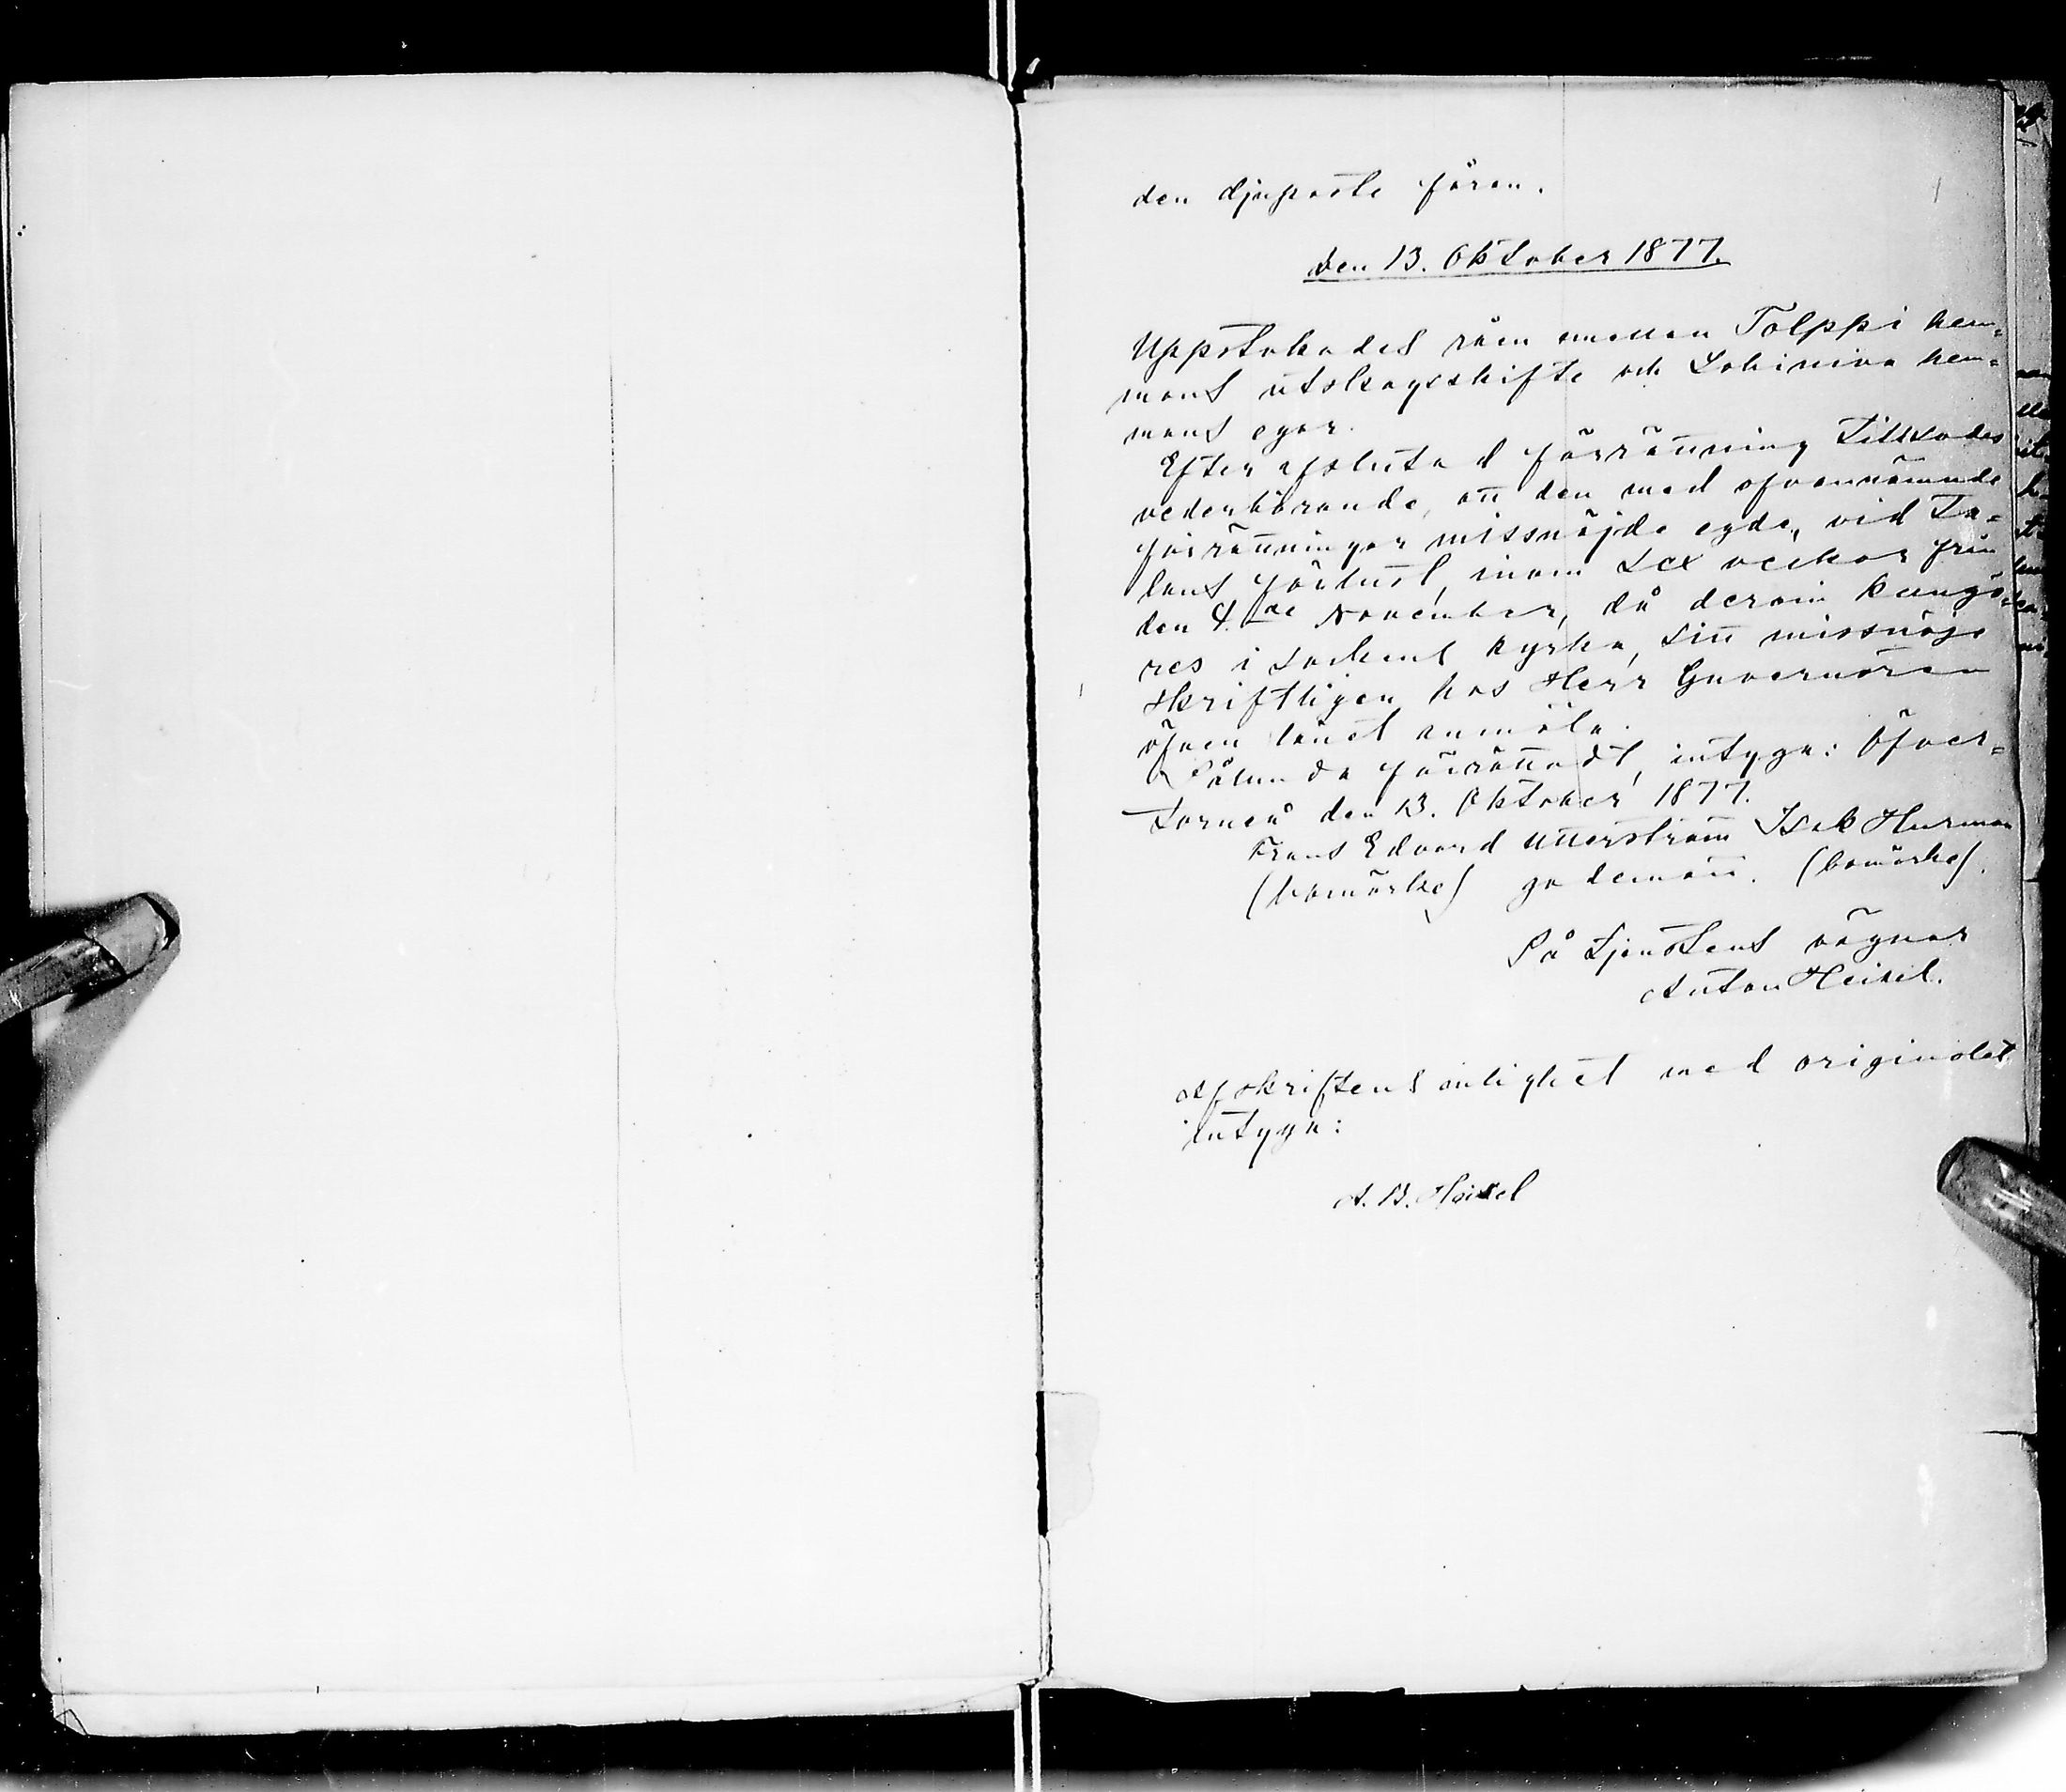 den djupaste fåran.
Den 13. Oktober 1877.
Uppstakades råen mellan Tolppi hem=
mans utskogsskifte och Lohiniva hem=
mans egor.
Efter afslutad förrättning tillsades
vederbörande, att den med ofvannämnde
förrättningar missnöjde egde, vid Ta=
lans förlust, inom sex veckor från
den 4.de November, då derom kungö=
res i sockens kyrka, sitt missnöje
skriftligen hos Herr Guvernören
öfver länet anmäla.
Sålunda förrättadt, intyga: Öfver=
torneå den 13. Oktober 1877.
Frans Edvard Utterström Isak Hurman
(bomärke) godemän. (bomärke).
På Tjenstens vägnar
Anton Heikel.
Afskriftens enlighet med originalet
intyga:
A. B. Heikel